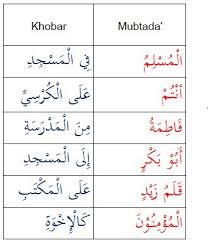 Khobar Mubtada'
الْمُسْلِمُ فِي الْمَسْجِدِ
أَنْتُمْ عَلَى الْكُرْسِيِّ
فَاطِمَةُ مِنَ الْمَدْرَسَةِ
أَبُوْ بَكْرٍ إِلَى الْمَسْجِدِ
قَلَمُ زَيْدٍ عَلَى الْمَكْتَبِ
الْمُؤْمِنُوْنَ كَالْإِخْوَةِ